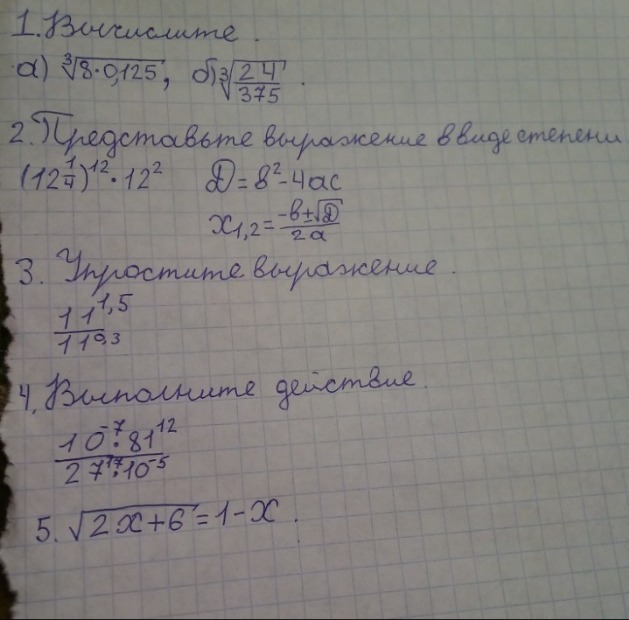 1. Вычислите.
а) ∛(8·0,125), б) ∛(24/375).
2. Представьте выражение в виде степени
(12^(1/4))^12·12^2   D=в²-4ac
x₁,₂=(-в±√D)/2a
3. Упростите выражение.
11^1,5/11^0,3
4. Выполните действие.
(10^-7·81^12)/(27^17·10^-5)
5. √(2x+6)=1-x.